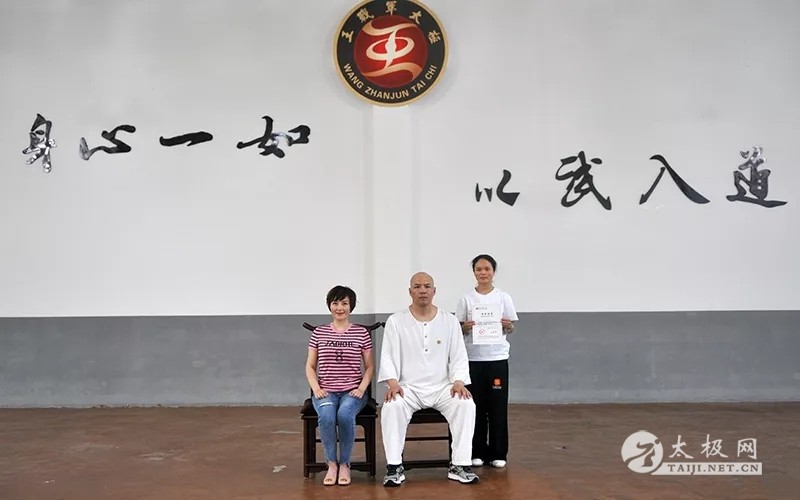 王戰軍太極
WANG ZHANJUN TAI CHI
身心一如
以武入道
8
太极网
TAIJI.NET.CN